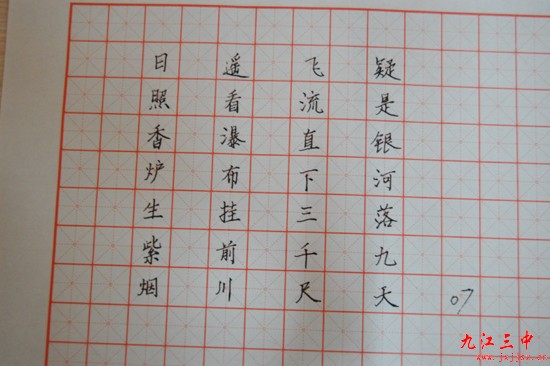 日照香炉生紫烟
遥看瀑布挂前川
飞流直下三千尺
疑是银河落九天
07
九江三中